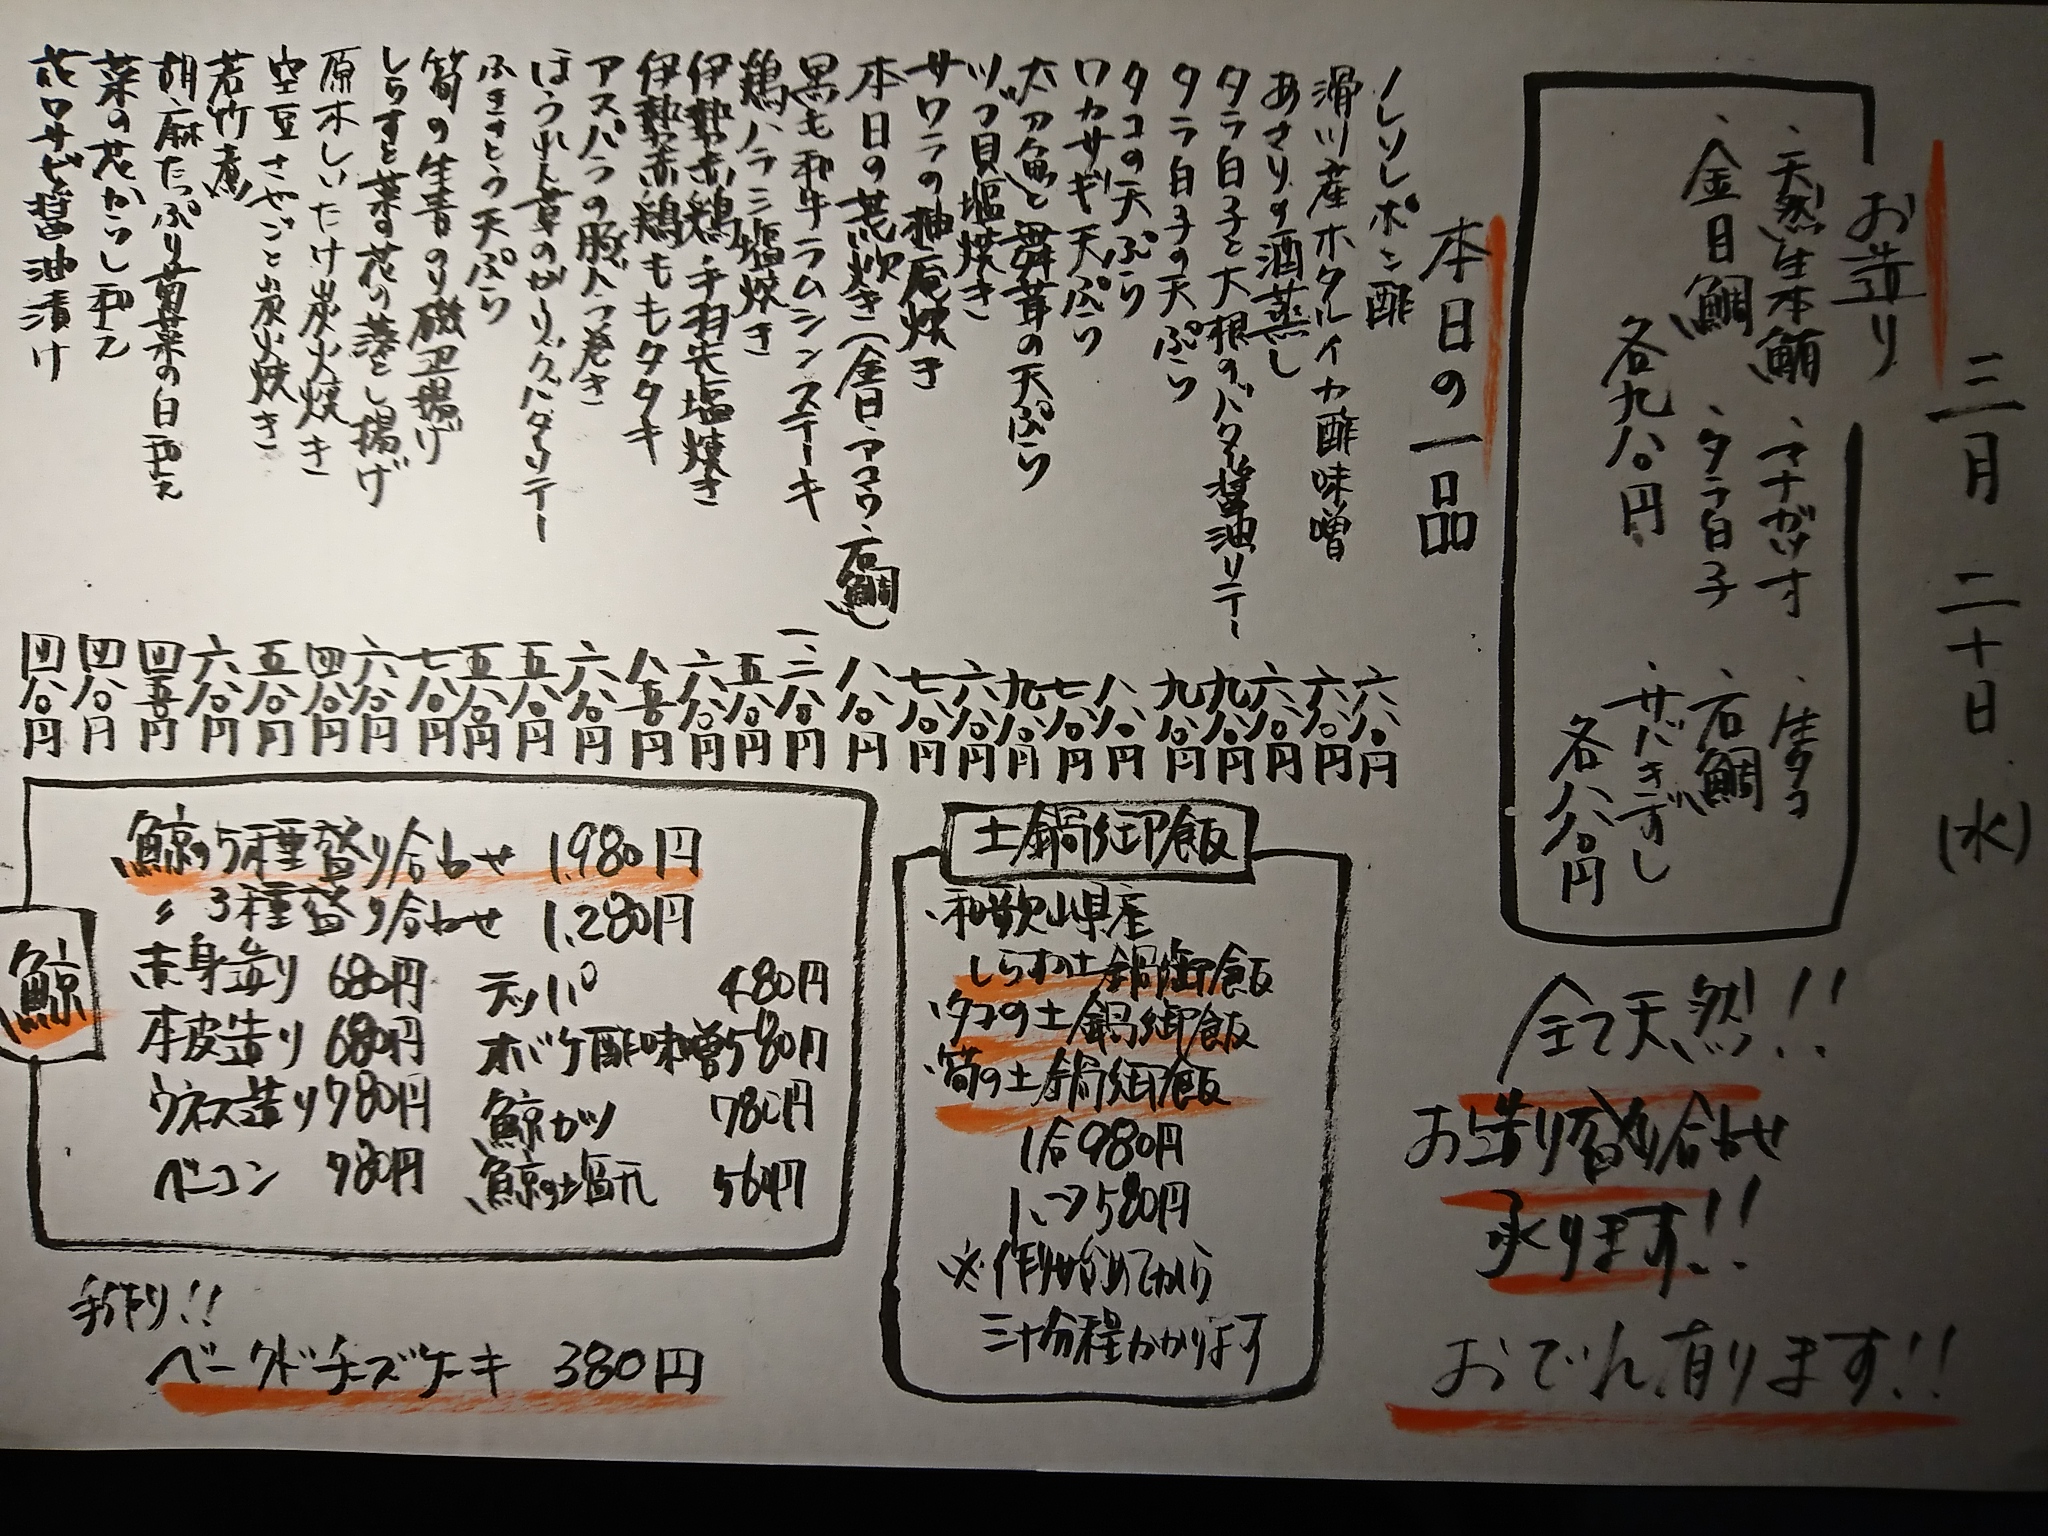 三月二十日(水)
お造り
、天然生本鮪 、マナガツオ 、生タコ
、金目鯛 、タラ白子 、石鯛
各九八〇円 、サバきずし
各八八〇円
全て天然!!
お造り盛り合わせ
承ります!!
おでん有ります!!
本日の一品
ノレソレポン酢 六八〇円
滑川産ホタルイカ酢味噌 六八〇円
あさりの酒蒸し 六八〇円
タラ白子と大根のバタイ醤油ソテー 九八〇円
タラ白子の天ぷら 九八〇円
タコの天ぷら 八八〇円
ワカサギ天ぷら 七八〇円
太刀魚と舞茸の天ぷら 九八〇円
ツブ貝塩焼き 六八〇円
サワラの柚庵焼き 七八〇円
本日の荒炊き(金目、アコウ、石鯛) 八八〇円
黒毛和牛ラムシンステーキ 一、二八〇円
鶏ハラミ塩焼き 五八〇円
伊勢赤鶏手羽先塩焼き 六八〇円
伊勢赤鶏ももタタキ 八五〇円
アスパラの豚バラ巻き 六八〇円
ほうれん草のガーリックバターソテー 五八〇円
ふきのとう天ぷら 五八〇円
筍の生青のり磯辺揚げ 七八〇円
しらすと菜の花の落とし揚げ 六八〇円
原木しいたけ炭火焼き 四八〇円
空豆さやごと炭火焼き 五八〇円
若竹煮 六八〇円
胡麻たっぷり菊菜の白和え 四五〇円
菜の花からし和え 四八〇円
花ワサビ醤油漬け 四八〇円
土鍋御飯
、和歌山県産
しらすの土鍋御飯
、タコの土鍋御飯
、筍の土鍋御飯
1合 980円
ハーフ 580円
※作り始めてから
三十分程かかります
鯨
鯨の5種盛り合わせ 1,980円
〃 3種盛り合わせ 1,280円
赤身造り 680円 テッパ 480円
本皮造り 680円 オバケ酢味噌 580円
ウネス造り 780円 鯨カツ 780円
ベーコン 780円 鯨の塩タレ 560円
手作り!!
ベークドチーズケーキ 380円